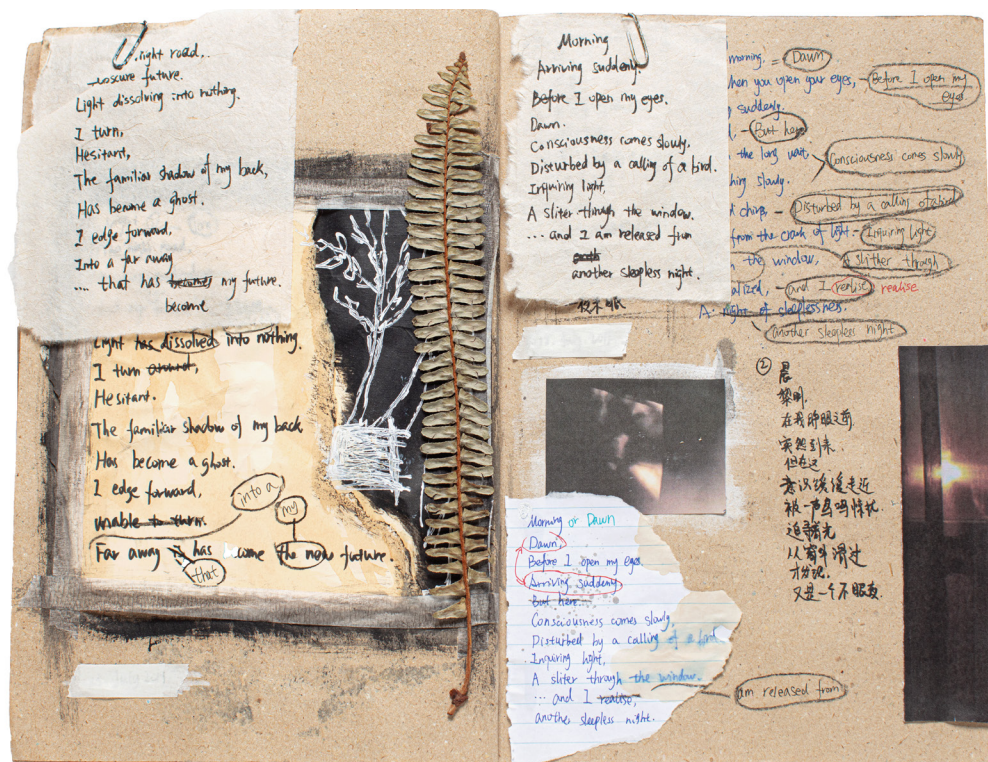 right road..
obscure future.
Light dissolving into nothing.
I turn,
Hesitant,
The familiar shadow of my back,
Has become a ghost.
I edge forward,
Into a far away
.... that has becomes my future.
become
Light has dissolved into nothing.
I turn around,
Hesitant.
The familiar shadow of my back
Has become a ghost.
I edge forward,
into a
unable to turn.
my
Far away is has become the new future.
that
Morning
Arriving suddenly.
Before I open my eyes.
Dawn.
Consciousness comes slowly,
Disturbed by a calling of a bird.
Inquiring light,
A sliter through the window.
... and I am released from
another sleepless night.
morning. = Dawn
when you open your eyes, - Before I open my eyes.
suddenly.
- But here
the long wait, Consciousness comes slowly
slowly.
chirp, - Disturbed by a calling of a bird
from the crack of light. - Inquiring light
the window, A slither through
alized, - and I realise realise
A night of sleeplessness.
another sleepless night
②
晨
黎明.
在我睁眼之前.
突然到来.
但在这
意识缓慢走近
被一声鸟鸣惊扰
追寻光
从窗外滑过
才发现.
又是一个不眠夜.
Morning or Dawn
Dawn,
Before I open my eyes.
Arriving suddenly
But here.
Consciousness comes slowly,
Disturbed by a calling of a bird.
Inquiring light,
A sliter through the window.
... and I realise,
am released from
another sleepless night.